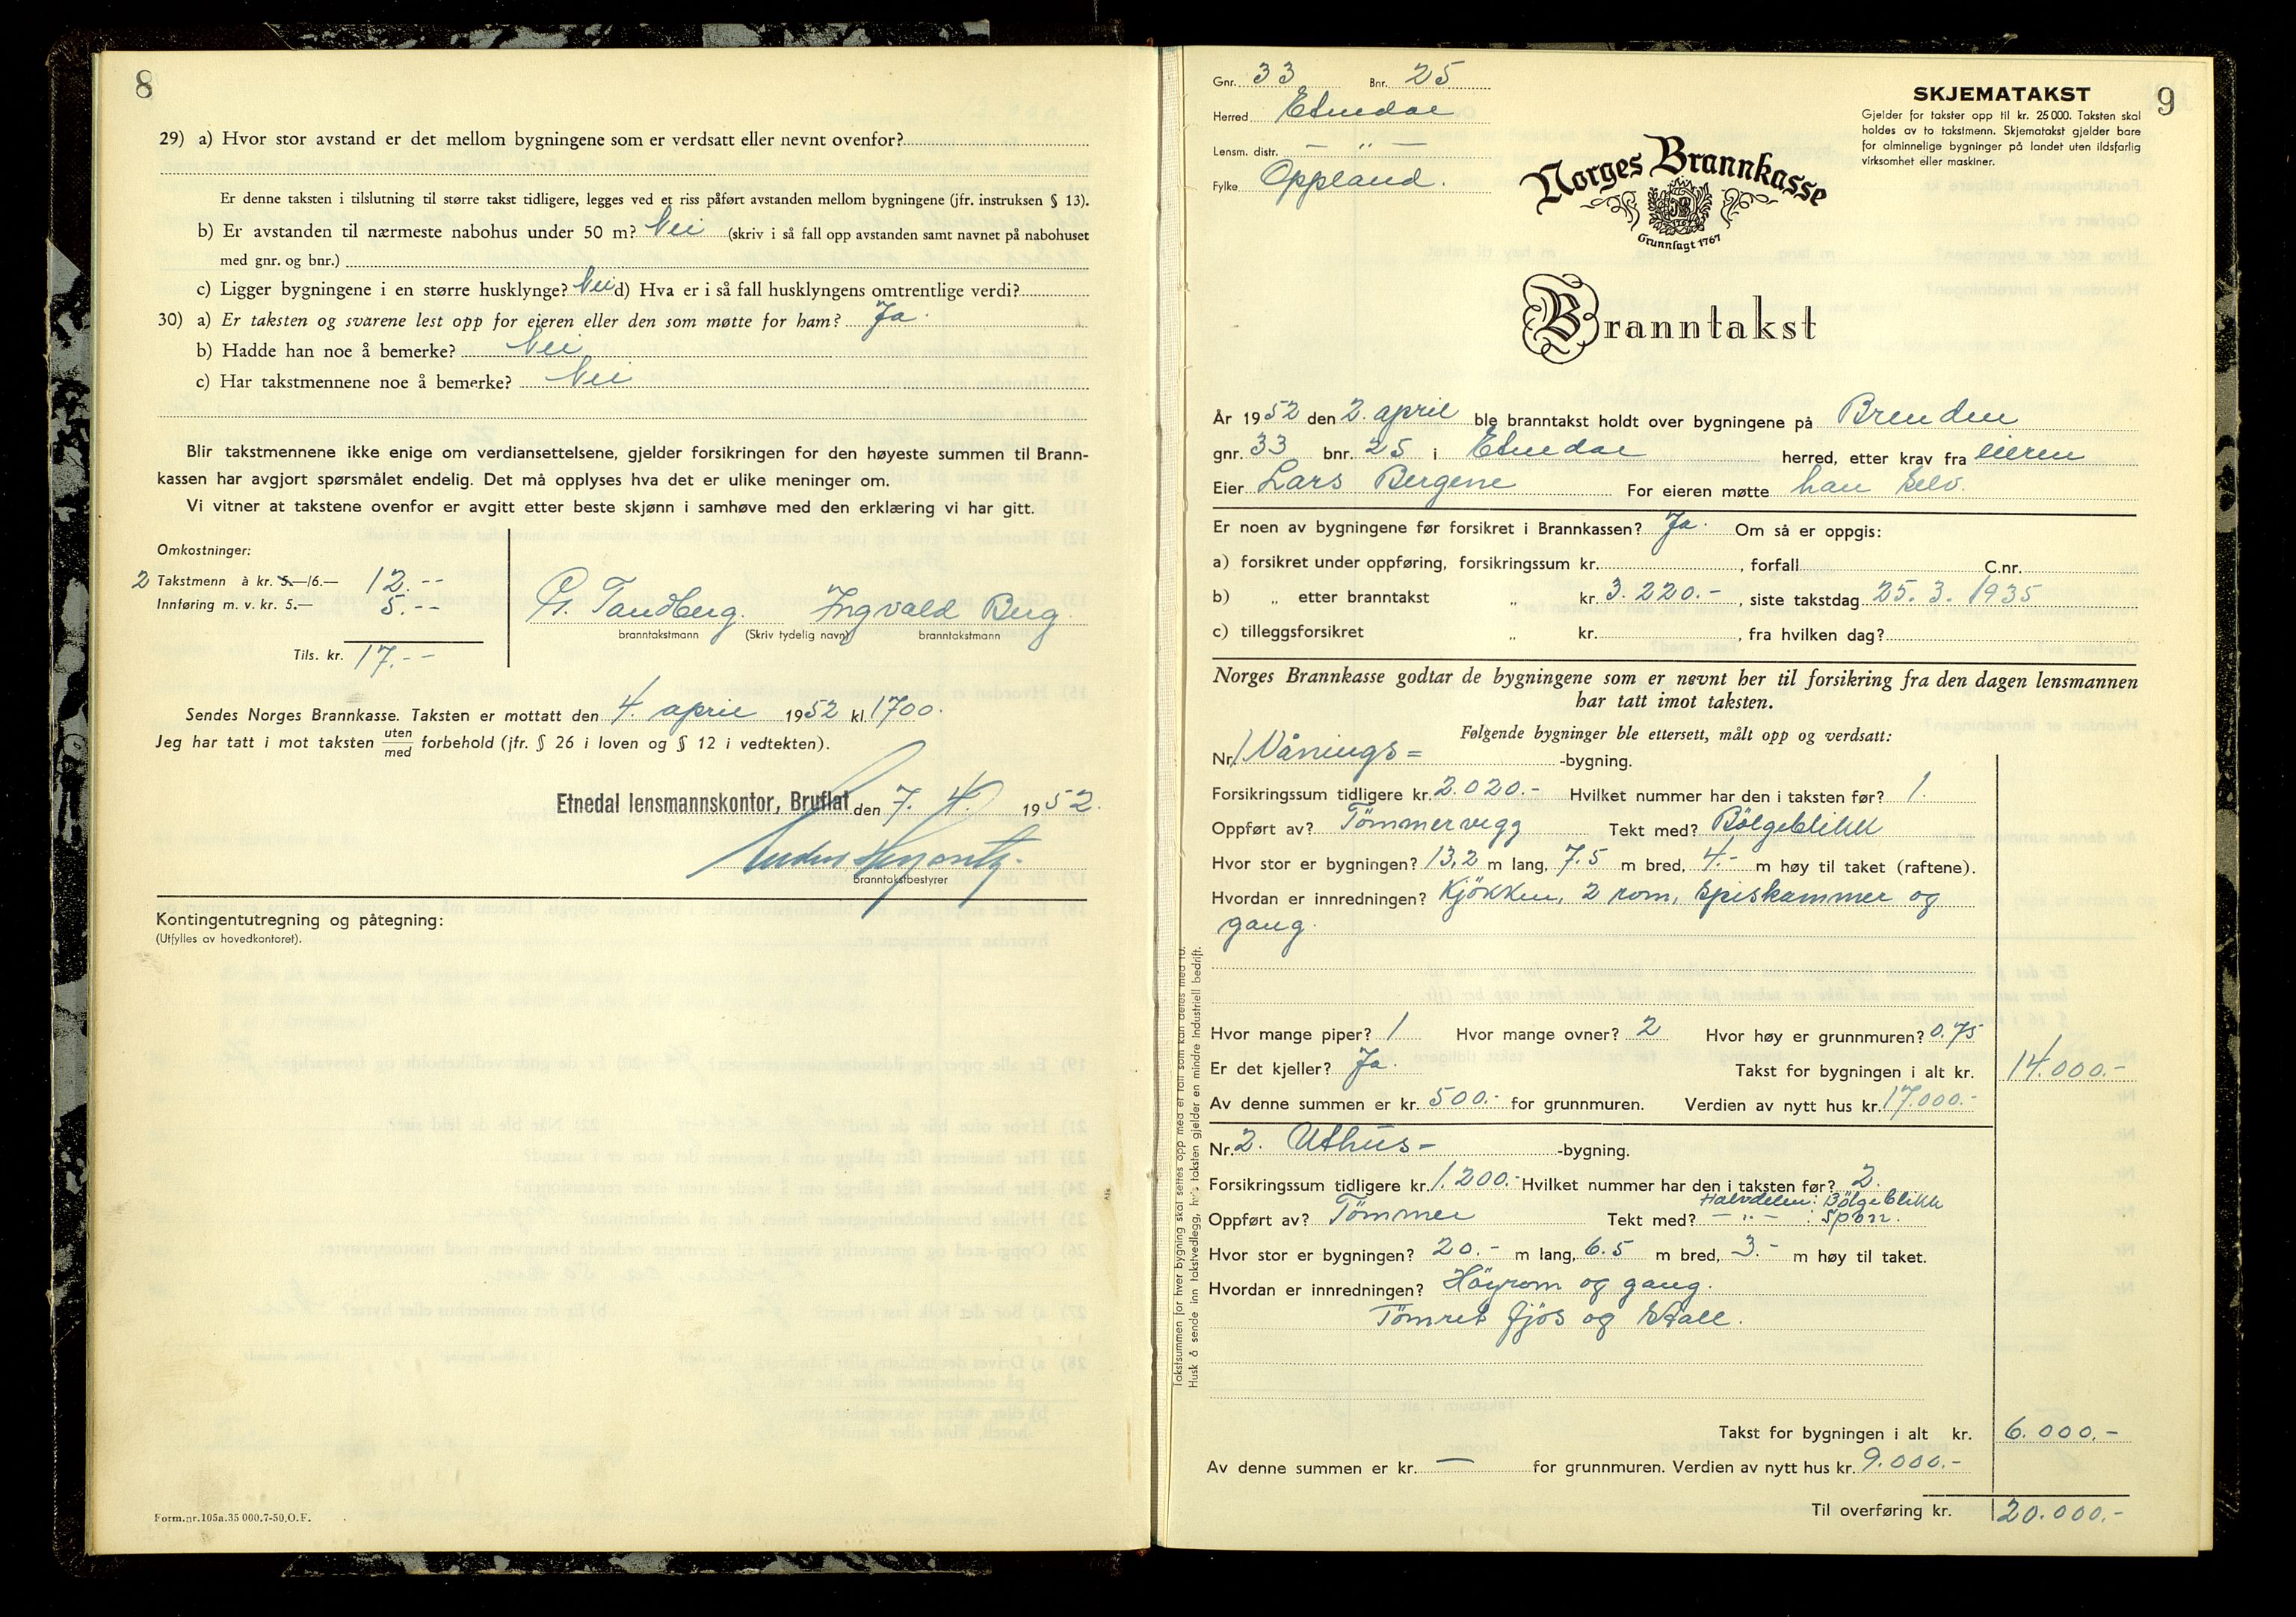 8
29) a) Hvor stor avstand er det mellom bygningene som er verdsatt eller nevnt ovenfor?
Er denne taksten i tilslutning til større takst tidligere, legges ved et riss påført avstanden mellom bygningene (jfr. instruksen § 13).
b) Er avstanden til nærmeste nabohus under 50 m? Nei (skriv i så fall opp avstanden samt navnet på nabohuset
med gnr. og bnr.)
c) Ligger bygningene i en større husklynge? Nei d) Hva er i så fall husklyngens omtrentlige verdi?
30) a) Er taksten og svarene lest opp for eieren eller den som møtte for ham? Ja.
b) Hadde han noe å bemerke? Nei
c) Har takstmennene noe å bemerke? Nei
Blir takstmennene ikke enige om verdiansettelsene, gjelder forsikringen for den høyeste summen til Brann-
kassen har avgjort spørsmålet endelig. Det må opplyses hva det er ulike meninger om.
Vi vitner at takstene ovenfor er avgitt etter beste skjønn i samhøve med den erklæring vi har gitt.
Omkostninger:
2 Takstmenn à kr. 5.—/6.— 12.--
Innføring m. v. kr. 5.— 5.--
Tils. kr. 17.--
Tandberg. Ingvald Berg.
branntakstmann (Skriv tydelig navn) branntakstmann
Sendes Norges Brannkasse. Taksten er mottatt den 4. april 1952 kl. 1700.
Jeg har tatt i mot taksten uten/med forbehold (jfr. § 26 i loven og § 12 i vedtekten).
Etnedal lensmannskontor, Bruflat den 7. 4. 1952.
branntakstbestyrer
Kontingentutregning og påtegning:
(Utfylles av hovedkontoret).
Form.nr.105a.35 000.7-50.O.F.
9
Gnr. 33 Bnr. 25
Herred Etnedal
Lensm. distr. — „ —
Fylke Oppland.
SKJEMATAKST
Gjelder for takster opp til kr. 25 000. Taksten skal
holdes av to takstmenn. Skjematakst gjelder bare
for alminnelige bygninger på landet uten ildsfarlig
virksomhet eller maskiner.
Norges Brannkasse
Grunnlagt 1767
Branntakst
År 1952 den 2. april ble branntakst holdt over bygningene på Brenden
gnr. 33 bnr. 25 i Etnedal herred, etter krav fra eieren
Eier Lars Bergene For eieren møtte han selv.
Er noen av bygningene før forsikret i Brannkassen? Ja. Om så er oppgis:
a) forsikret under oppføring, forsikringssum kr. , forfall C.nr.
b) „ etter branntakst „ kr. 3.220.- , siste takstdag 25. 3. 1935
c) tilleggsforsikret „ kr. , fra hvilken dag?
Norges Brannkasse godtar de bygningene som er nevnt her til forsikring fra den dagen lensmannen
har tatt imot taksten.
Følgende bygninger ble ettersett, målt opp og verdsatt:
Nr. 1 Vånings= -bygning.
Forsikringssum tidligere kr. 2.020.- Hvilket nummer har den i taksten før? 1.
Oppført av? Tömmervegg Tekt med? Bölgeblikk
Hvor stor er bygningen? 13,2 m lang, 7.5 m bred, 4.- m høy til taket (raftene).
Hvordan er innredningen? Kjökken, 2 rom, spiskammer og
gang.
Hvor mange piper? 1 Hvor mange ovner? 2 Hvor høy er grunnmuren? 0.75
Er det kjeller? Ja. Takst for bygningen i alt kr. 14.000.-
Av denne summen er kr. 500.- for grunnmuren. Verdien av nytt hus kr. 17.000.-
Nr. 2. Uthus- -bygning.
Forsikringssum tidligere kr. 1.200.- Hvilket nummer har den i taksten før? 2.
Halvdelen: Bölgeblikk
Oppført av? Tömmer Tekt med? — „ — : Spon.
Hvor stor er bygningen? 20.- m lang, 6.5 m bred, 3.- m høy til taket.
Hvordan er innredningen? Höyrom og gang.
Tömret fjös og stall.
Takst for bygningen i alt kr. 6.000.-
Av denne summen er kr. — for grunnmuren. Verdien av nytt hus kr. 9.000.-
Til overføring kr. 20.000.-
Takstsummen for hver bygning skal settes opp med et tall som kan deles med 10.
Husk å sende inn takstvedlegg, hvis taksten gjelder en mindre industriell bedrift.